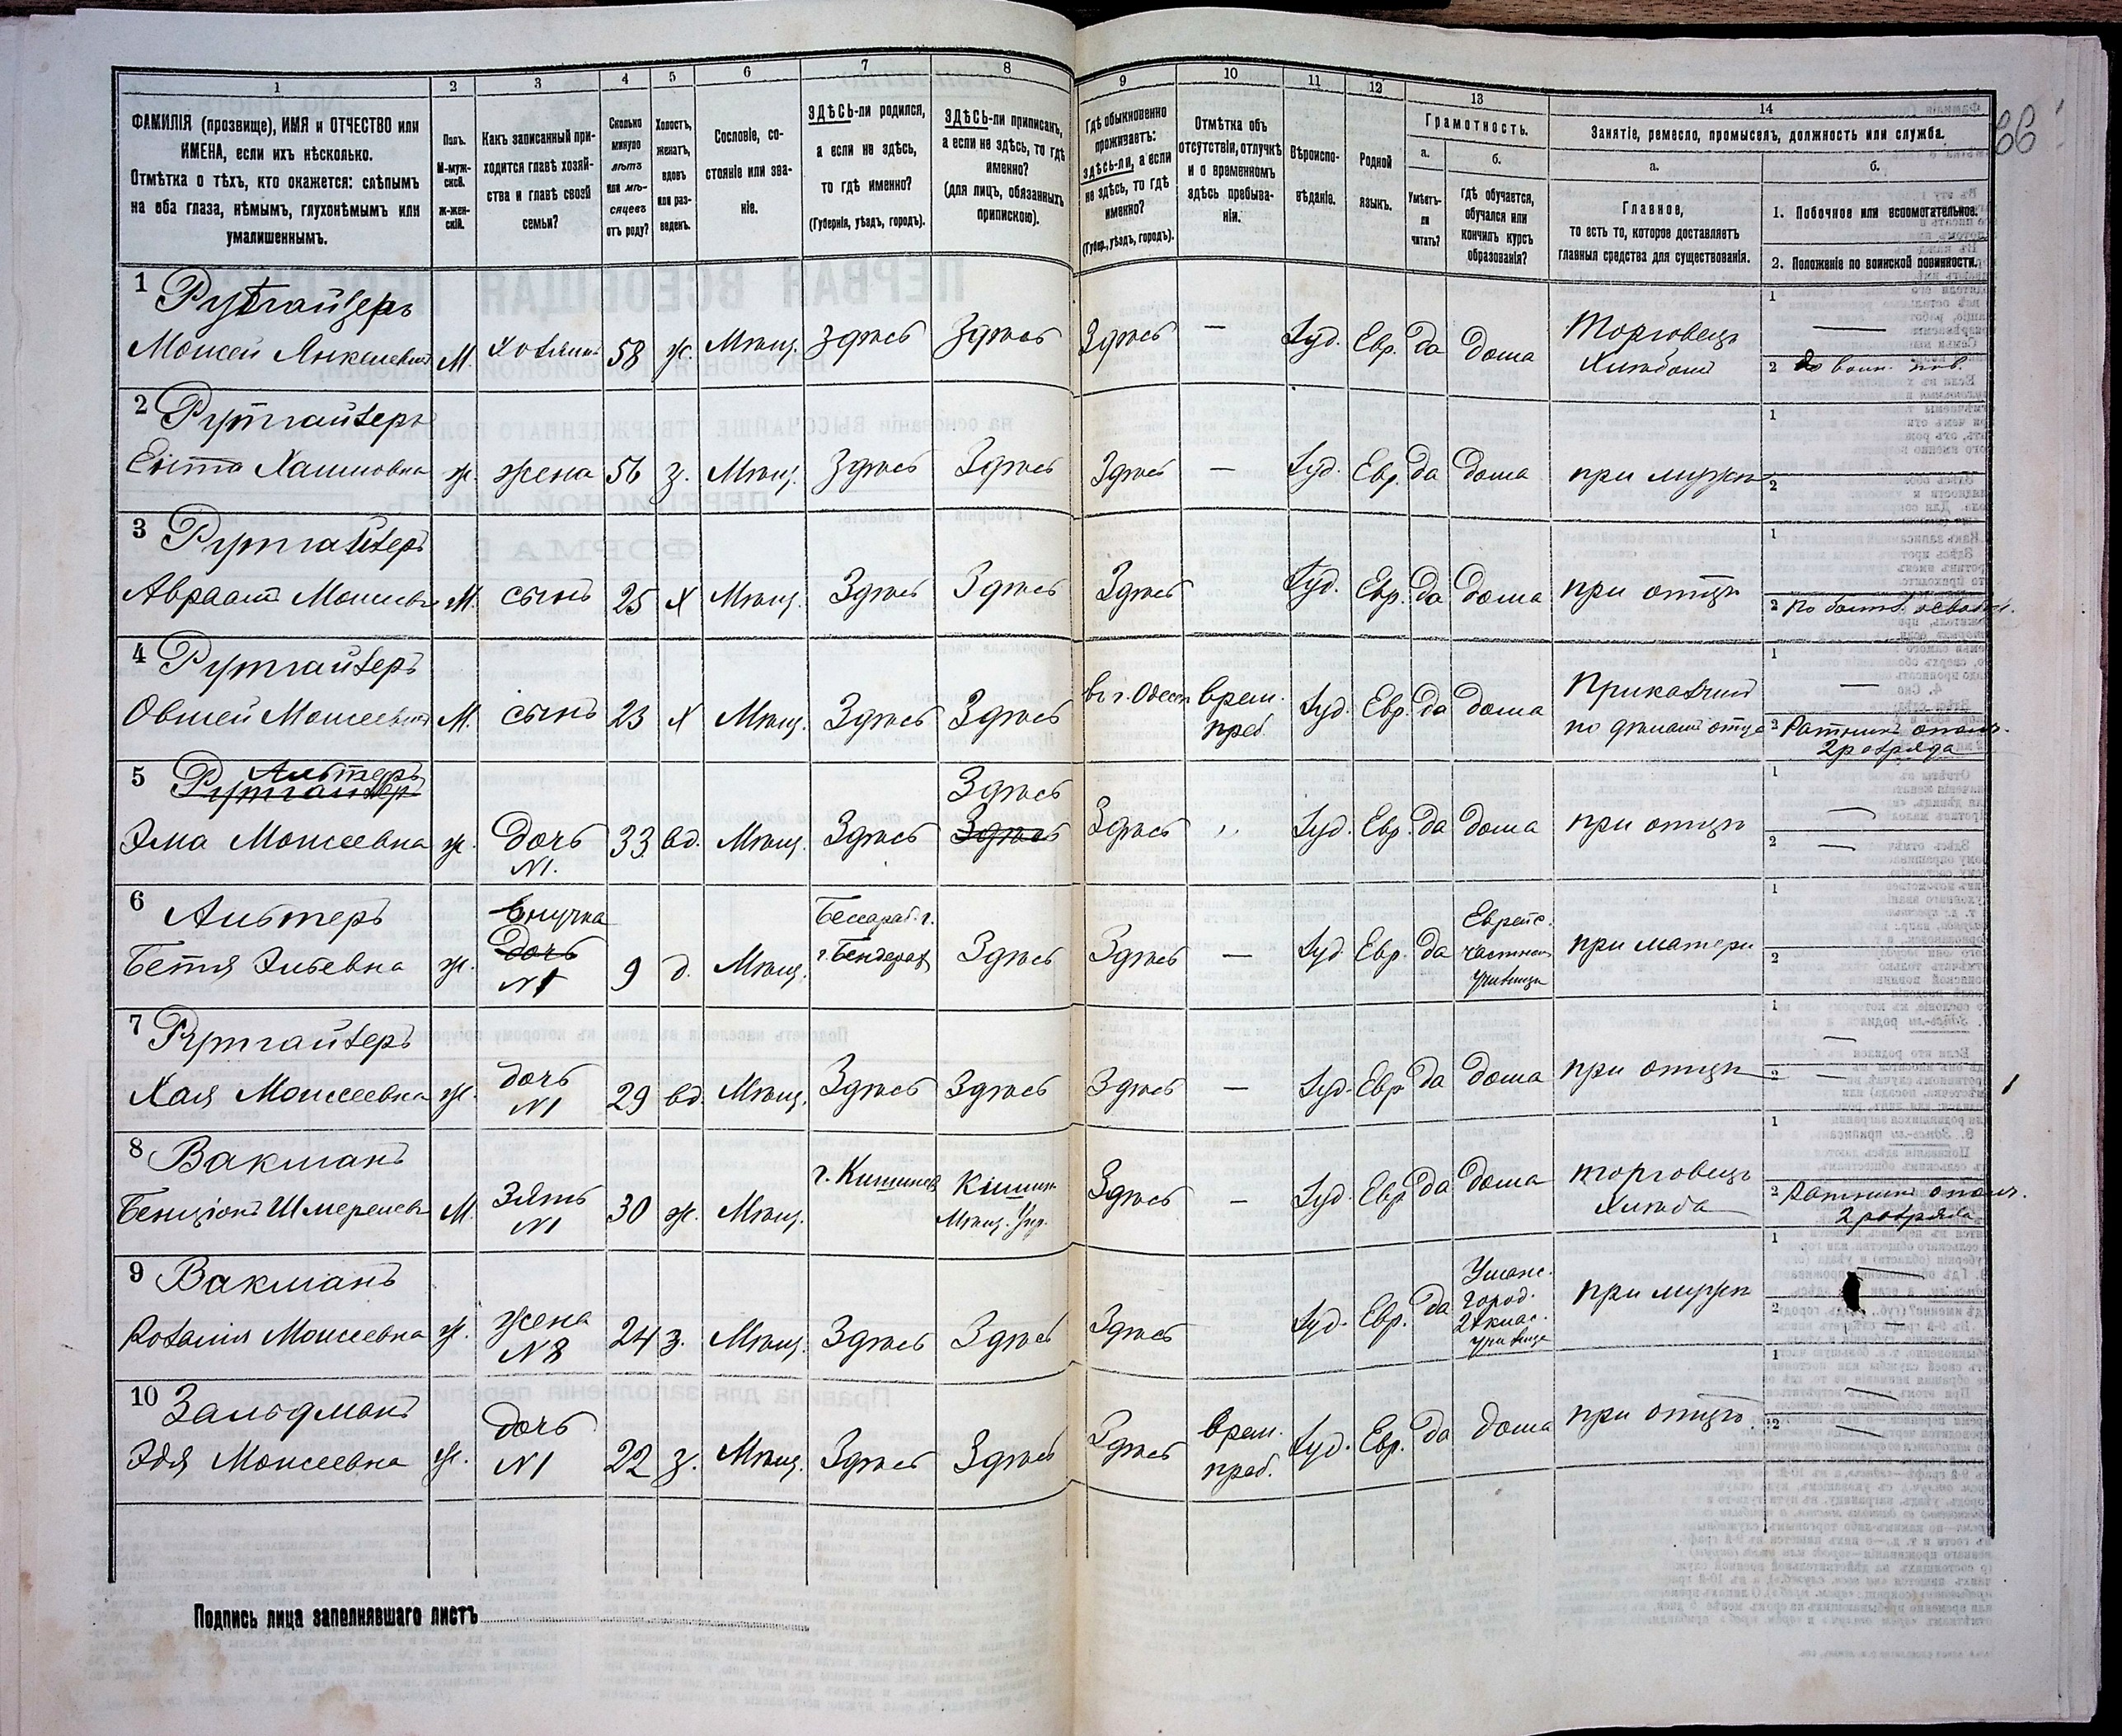 1 2 3 4 5 6 7 8 9 10 11 12 13 14
ФАМИЛІЯ (прозвище), ИМЯ и ОТЧЕСТВО или
ИМЕНА, если ихъ нѣсколько.
Отмѣтка о тѣхъ, кто окажется: слѣпымъ
на оба глаза, нѣмымъ, глухонѣмымъ или
умалишеннымъ.
Полъ.
М-муж-
ской.
ж-жен-
скій.
Какъ записанный при-
ходится главѣ хозяй-
ства и главѣ своей
семьи?
Сколько
минуло
лѣтъ
или мѣ-
сяцевъ
отъ роду?
Холостъ,
женатъ,
вдовъ
или раз-
веденъ.
Сословіе, со-
стояніе или зва-
ніе.
ЗДѢСЬ-ли родился,
а если не здѣсь,
то гдѣ именно?
(Губернія, уѣздъ, городъ).
ЗДѢСЬ-ли приписанъ,
а если не здѣсь, то гдѣ
именно?
(для лицъ, обязанныхъ
припискою).
Гдѣ обыкновенно
проживаетъ:
здѣсь-ли, а если
не здѣсь, то гдѣ
именно?
(Губер., уѣздъ, городъ).
Отмѣтка объ
отсутствіи, отлучкѣ
и о временномъ
здѣсь пребыва-
ніи.
Вѣроиспо-
вѣданіе.
Родной
языкъ.
Грамотность.
а.
Умѣетъ-
ли
читать?
б.
Гдѣ обучается,
обучался или
кончилъ курсъ
образованія?
Занятіе, ремесло, промыселъ, должность или служба.
а.
Главное,
то есть то, которое доставляетъ
главныя средства для существованія.
б.
1. Побочное или вспомогательное.
2. Положеніе по воинской повинности.
66
1 Рутгайзеръ
Моисей Янкелевичъ М. хозяинъ 58 ж. Мѣщ. здѣсь здѣсь Здѣсь — Іуд. Евр. да дома Торговецъ
Хлѣбомъ
1 —
2 до воин. пов.
2 Рутгайзеръ
Ента Хаимовна ж. жена 56 з. Мѣщ. здѣсь Здѣсь Здѣсь — Іуд. Евр. да дома при мужѣ
1
2
3 Рутгайзеръ
Авраамъ Моисеев М. сынъ 25 Х Мѣщ. Здѣсь Здѣсь Здѣсь Іуд. Евр. да дома при отцѣ
1
2
4 Рутгайзеръ
Овшей Моисеевичъ М. сынъ 23 Х Мѣщ. Здѣсь Здѣсь въ г. Одессѣ врем.
преб. Іуд. Евр. да дома Приказчикъ
по дѣламъ отца
1 —
2 Ратникъ ополч.
2 разряда
5 Альтеръ
Рутгайзер
Элма Моисеевна ж. дочь
N1. 33 вд. Мѣщ. Здѣсь Здѣсь
Здѣсь
Здѣсь ,, Іуд. Евр. да дома при отцѣ
1 —
2 —
6 Альтеръ
Бетя Эльевна ж. Внучка
дочь
N1 9 д. Мѣщ. Бессараб. г.
г. Бендерах Здѣсь Здѣсь — Іуд. Евр. да Еврейс.
частном
училищѣ при матери
1
2
7 Рутгайзеръ
Хая Моисеевна ж. дочь
N1 29 вд. Мѣщ. Здѣсь Здѣсь Здѣсь — Іуд. Евр. да дома при отцѣ
1 —
2 —
8 Вакманъ
Бенціонъ Шмерелев М. Зять
N1 30 ж. Мѣщ. г. Кишиневѣ Кишин.
Мѣщ. Упр. Здѣсь — Іуд. Евр. да дома торговецъ
хлѣба
1
2 Ратникъ ополч.
2 разряда
9 Вакманъ
Розалия Моисеевна ж. жена
N 8 24 з. Мѣщ. Здѣсь Здѣсь Здѣсь Іуд. Евр. да Уманс.
город.
2х клас.
училище при мужѣ
1 —
2 —
10 Зальдманъ
Эдя Моисеевна ж. дочь
N1 22 з. Мѣщ. Здѣсь Здѣсь Здѣсь врем.
преб. Іуд. Евр. да дома при отцѣ
1 —
2 —
Подпись лица заполнявшаго листъ